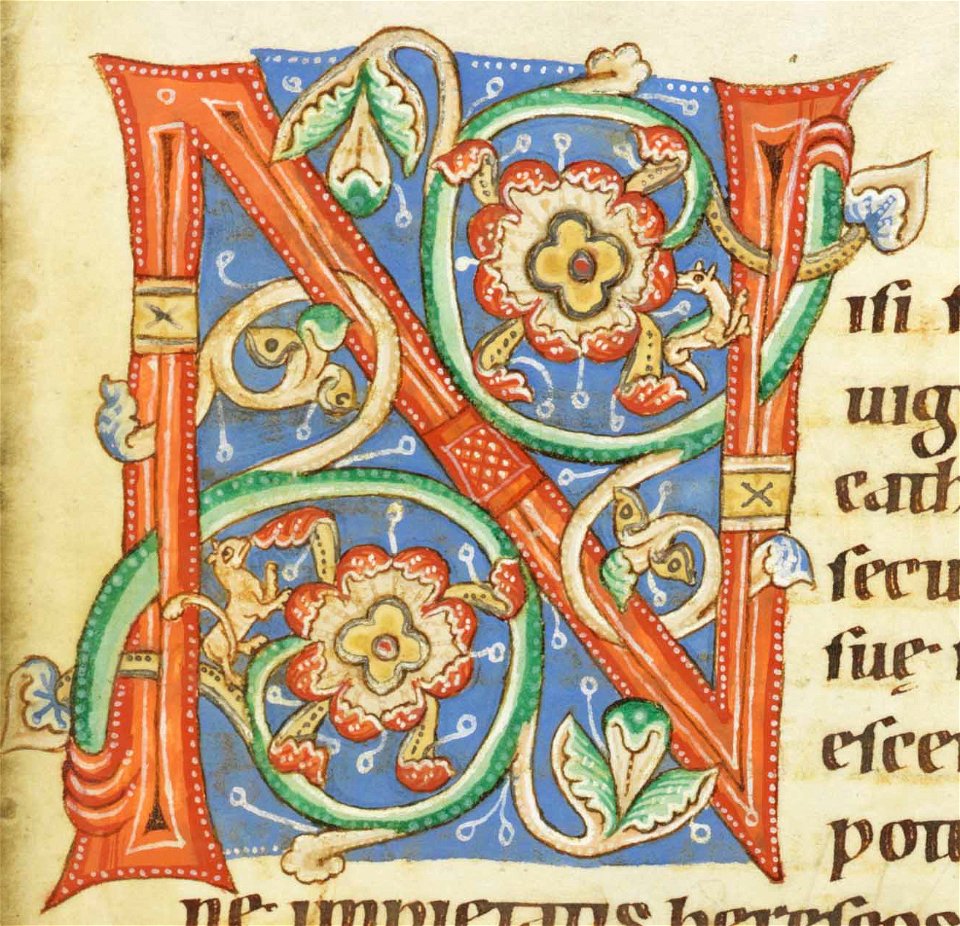 N
iſi ſ
uig
cath
ſecu
ſuę·
eſcen
potu
ne· impietatis hereſeos